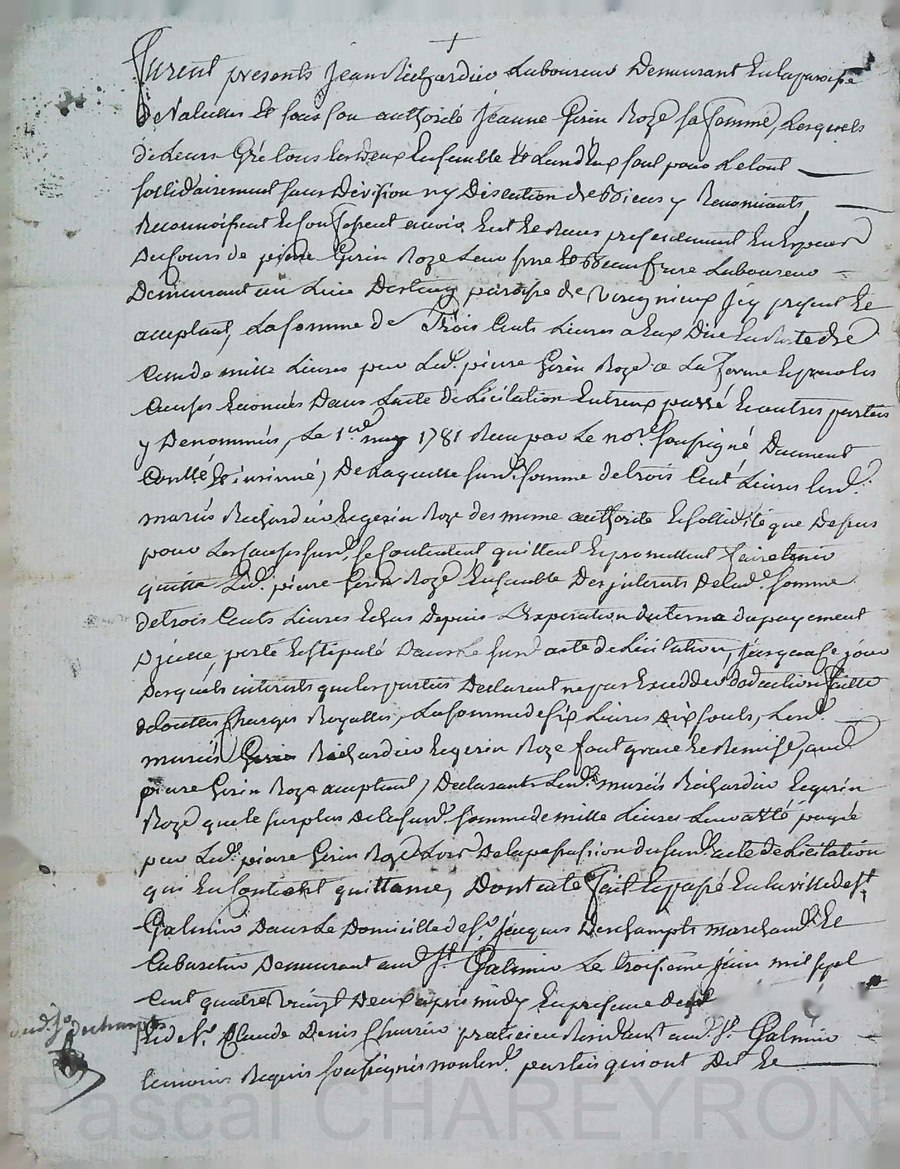 +
furent presents Jean Richardier Laboureur Demeurant En la paroisse
De Valeilles Et sous son authorité Jeanne Girin Roze sa femme, Lesquels
de Leurs Gré tous Les deux Ensemble Et L'un d'Eux seul pour Le tout
sollidairement sans Division ny Discution de Biens y Renonçants,
Reconnoissent Et Confessent avoir Eut Et Receu presentement En Especes
Du Cours de pierre Girin Roze Leur frere Et Beaufrere Laboureur
Demeurant au Lieu paroisse de Virignieux Icy present Et
acceptant, La somme de Trois Cents Livres a Eux Due En Reste de
Celle de mille Livres par Led. pierre Girin Roze a La forme Et pour les
Causes Enoncés Dans L'acte de Licitation Entr'eux passé Et autres parties
y Denommés, Le 1er may 1781 Reçu par Le nore. soussigné Duement
Contllé Et insinué, De Laquelle susd. somme de trois Cent Livres Lesd.
mariés Richardier Et Gerin Roze des meme authorité Et sollidité que Dessus
pour Les Causes susd. se Contentent quittent Et promettent faire tenir
quitte Led. pierre Girin Roze Ensemble Des interets De lad. somme
de trois Cents Livres Echus Depuis L'Expiration du terme du payement
D'jcelle, porté Et stipulé Dans Le susd. acte de Licitation, jusqu'a ce jour
Desquels interets que Les parties Declarent ne pas Exceder deduction faitte
de touttes Charges Royalles, La somme de six Livres Dix sols, Lesd.
mariés Richardier Et Gerin Roze font grace Et Remise, aud.
pierre Girin Roze acceptant, Declarants Lesd. mariés Richardier Et Gerin
Roze que Le surplus De La susd. somme de mille Livres Leur a Eté payé
par Led. pierre Girin Roze Lors De la passassion du susd. acte de Licitation
qui En Contient quittance, Dont acte fait Et passé En la ville de St.
Galmier Dans Le Domicille de sr. Jacques Deschamps marchand Et
Cabaretier Demeurant aud. St. Galmier Le troisieme Juin mil sept
Cent quatre vingt Deux apres midy En presence
Et de sr. Claude Denis praticien Residant aud. St. Galmier
temoins Requis soussignés non Lesd. parties qui ont Dit Ne
aud. Sr. Deschamps
Pascal CHAREYRON